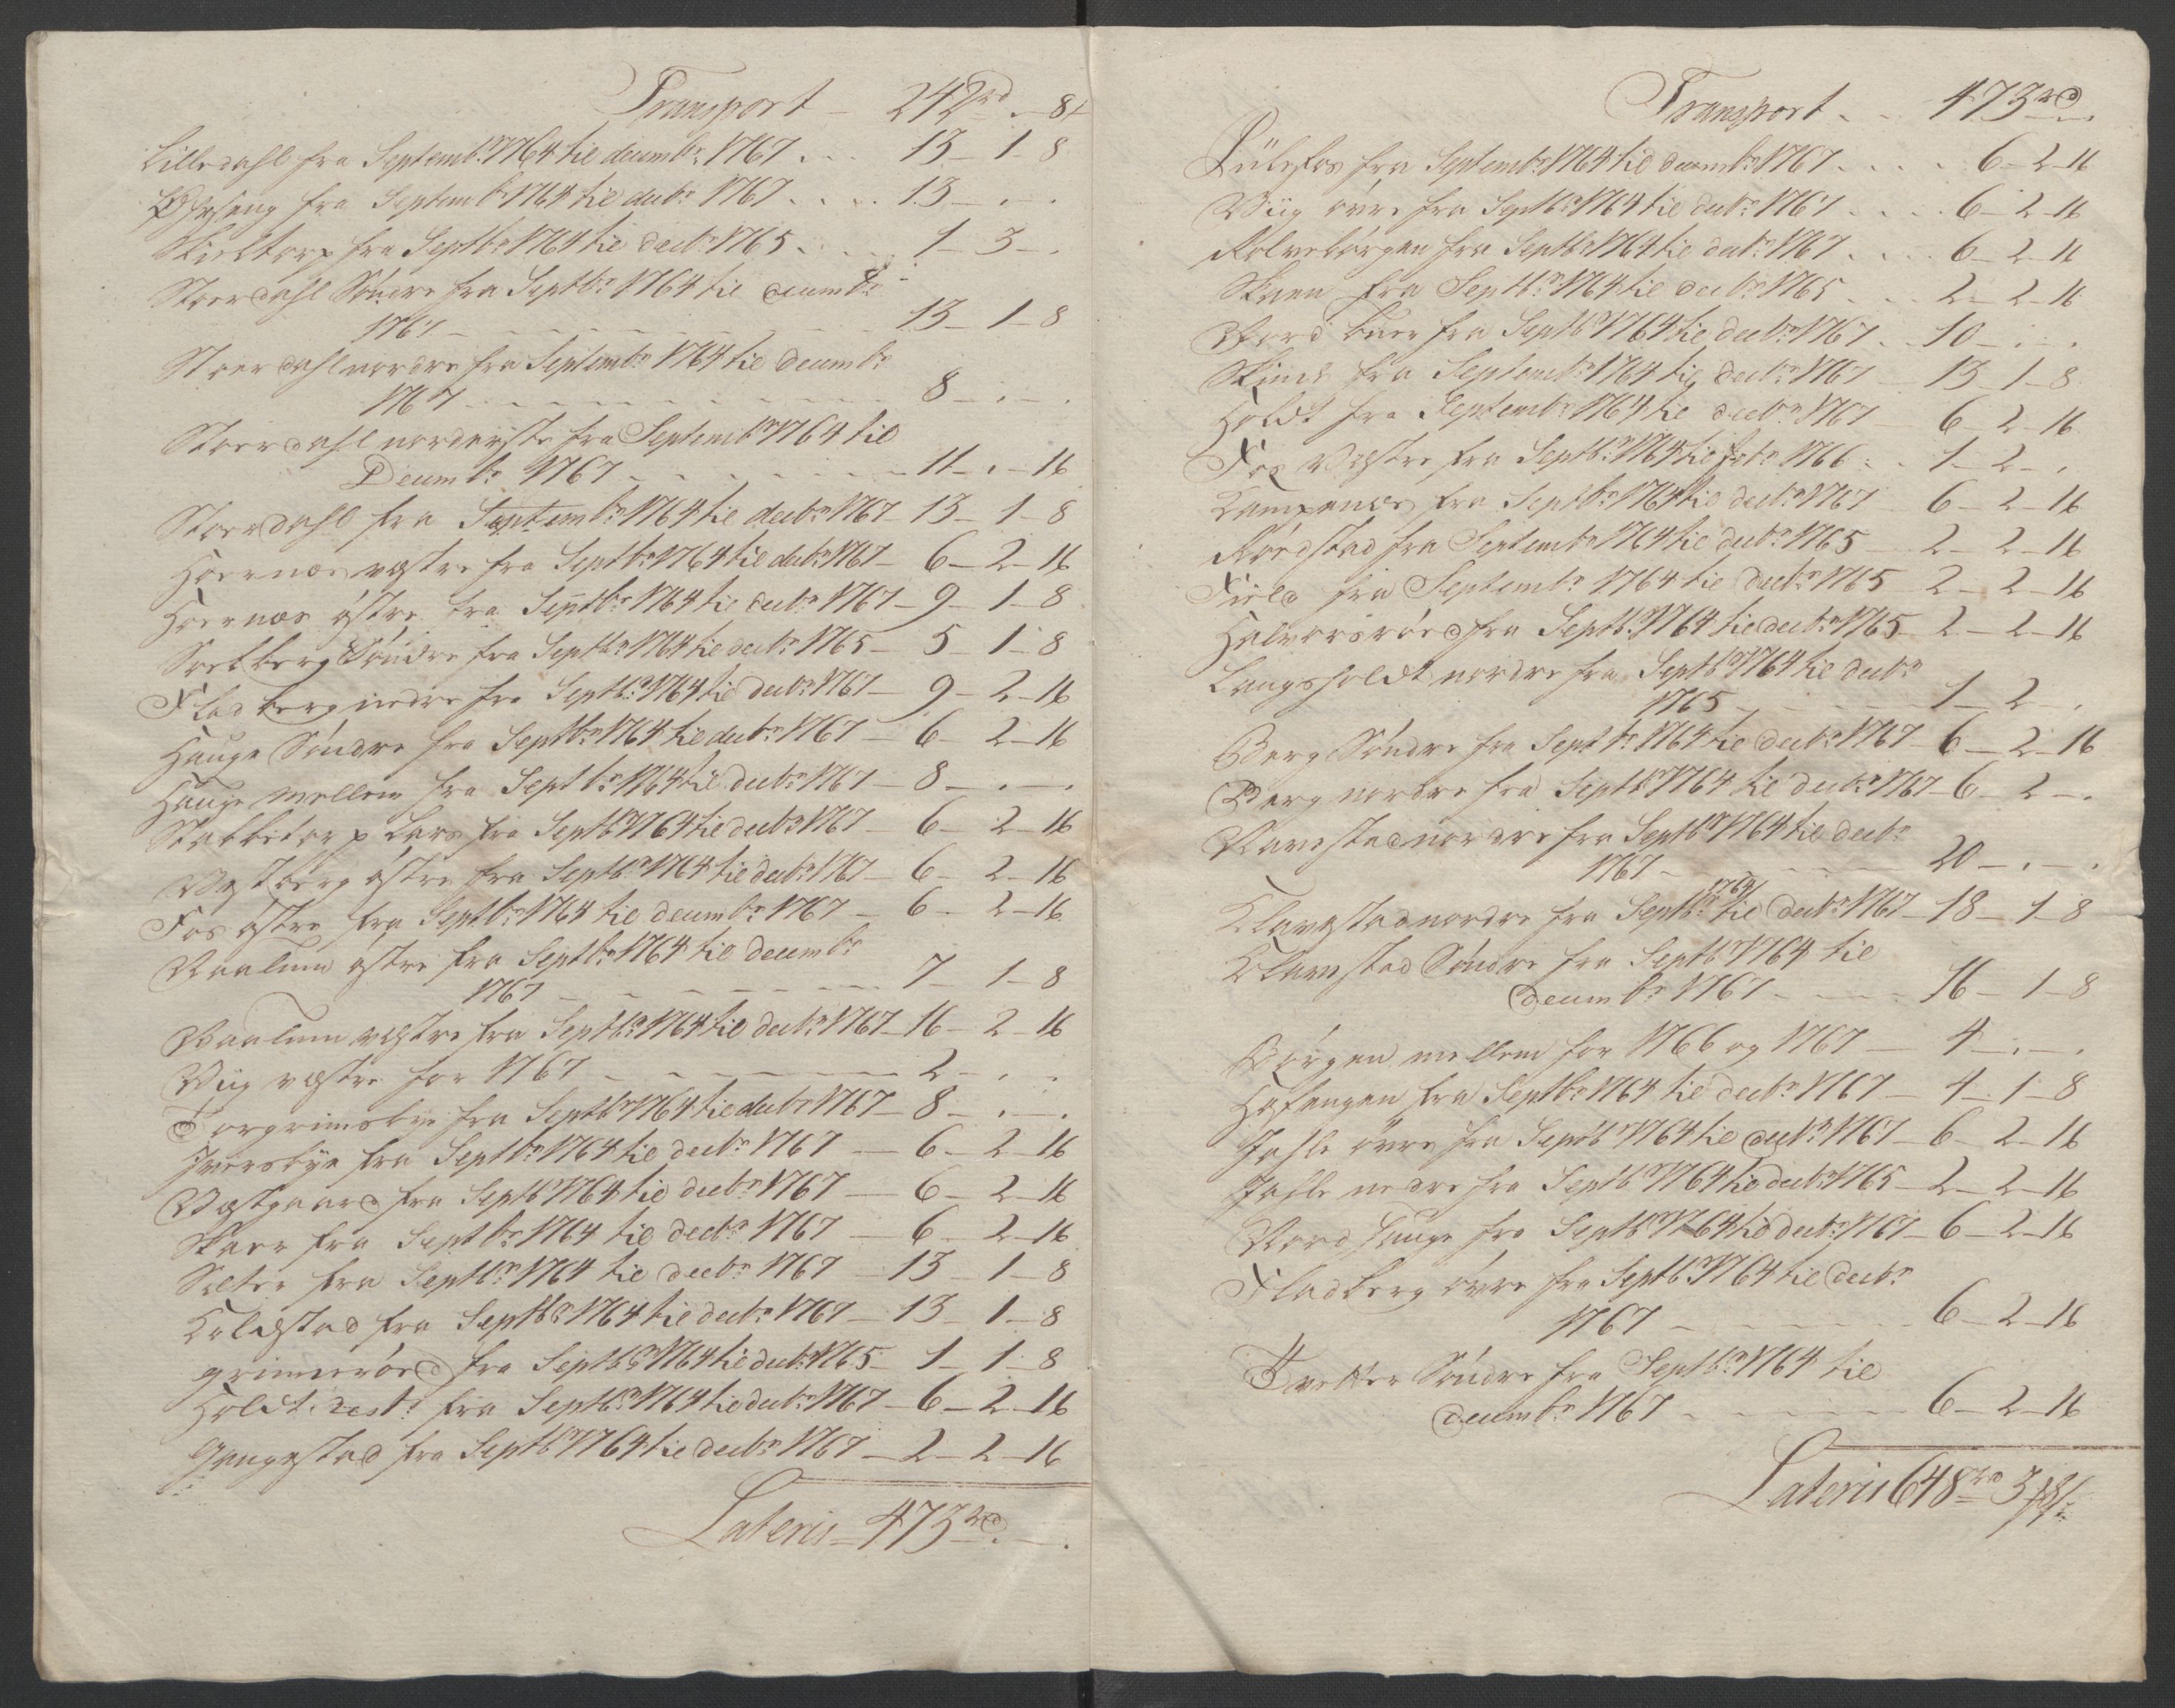 Transport - 242rd . - 8/
Lilledahl fra Septembr. 1764 til decembr. 1767 . . . 13 - 1 - 8
fra Septembr 1764 til decbr. 1767 . . . . 13 - . - .
Skieltorp fra Septbr. 1764 til decbr. 1765 . . . 1 - 3 - .
Stoerdahl Söndre fra Septbr. 1764 til decembr.
1767 - - - - - - - 13 - 1 - 8
Stoerdahl nordre fra Septembr. 1764 til decembr.
1767 - - - - - - - 8 - . - .
Stoerdahl norderste fra Septembr. 1764 til
Decembr. 1767 - - - - - - - 11 - . - 16
Stoerdahl fra Septembr. 1764 til decbr. 1767 - 13 - 1 - 8
Hoernæs vestre fra Septbr. 1764 til decbr. 1767 - 6 - 2 - 16
Hoernæs östre fra Septbr. 1764 til decbr. 1767 - 9 - 1 - 8
Soelberg Söndre fra Septbr. 1764 til decbr. 1765 - 5 - 1 - 8
Fladberg nedre fra Septbr. 1764 til decbr. 1767 - 9 - 2 - 16
Hauge Söndre fra Septbr. 1764 til decbr. 1767 - 6 - 2 - 16
Hauge mellem fra Septbr. 1764 til decbr. 1767 - 8 - . - .
Stabbetorp Lars fra Septbr. 1764 til decbr. 1767 - 6 - 2 - 16
Vestberg östre fra Septbr. 1764 til decbr. 1767 - 6 - 2 - 16
Fos östre fra Septbr. 1764 til decembr. 1767 - 6 - 2 - 16
Vaalum östre fra Septbr. 1764 til decembr.
1767 - - - - - - - 7 - 1 - 8
Vaalum vestre fra Septbr. 1764 til decbr. 1767 - 16 - 2 - 16
Viig vestre for 1767 - - - - - - - 2 - . - .
Torgrimsbye fra Septbr. 1764 til decbr. 1767 - 8 - . - .
Iversbye fra Septbr. 1764 til decbr. 1767 - 6 - 2 - 16
Vestgaard fra Septbr. 1764 til decbr. 1767 - 6 - 2 - 16
Skaar fra Septbr. 1764 til decbr. 1767 - 6 - 2 - 16
Sæter fra Septbr. 1764 til decbr. 1767 - 13 - 1 - 8
Kolestad fra Septbr. 1764 til decbr. 1767 - 13 - 1 - 8
grimeröed fra Septbr. 1764 til decbr. 1765 - 1 - 1 - 8
Holdt fra Septbr. 1764 til decbr. 1767 - 6 - 2 - 16
Gaugestad fra Septbr. 1764 til decbr. 1767 - 2 - 2 - 16
Lateris - 473rd. - .
Transport . . 473rd . .
fra Septembr. 1764 til decembr. 1767 . . . . 6 - 2 - 16
Viig övre fra Septbr. 1764 til decbr. 1767 . . . . 6 - 2 - 16
Kolvebörgen fra Septbr. 1764 til decbr. 1767 . . . . 6 - 2 - 16
Skaen fra Septbr. 1764 til decbr. 1765 . . . 2 - 2 - 16
fra Septbr. 1764 til decbr. 1767 . . 10 - . - .
fra Septembr. 1764 til decbr. 1767 - 13 - 1 - 8
Holdt fra Septembr. 1764 til decbr. 1767 - 6 - 2 - 16
Fos Vestre fra Septbr. 1764 til 1766 . . 1 - 2 - .
Kampenæs fra Septbr. 1764 til decbr. 1767 - 6 - 2 - 16
Röedstad fra Septembr. 1764 til decbr. 1765 - 2 - 2 - 16
Field fra Septembr. 1764 til decbr. 1765 - 2 - 2 - 16
Halvorsröed fra Septbr. 1764 til decbr. 1765 - 2 - 2 - 16
Langsholdt nordre fra Septbr. 1764 til decbr.
1765 - - - - - 1 - 2 - .
Berg Söndre fra Septbr. 1764 til decbr. 1767 - 6 - 2 - 16
Berg nordre fra Septbr. 1764 til decbr. 1767 - 6 - 2 - .
Navestad nordre fra Septbr. 1764 til decbr.
1767 - - - - - 20 - . - .
Klavestad nordre fra Septbr. 1764/ til decbr. 1767 - 18 - 1 - 8
Klavestad Söndre fra Septbr. 1764 til
decembr. 1767 - - - - 16 - 1 - 8
Börgen mellem for 1766 og 1767 - 4 - . - .
Hafangen fra Septbr. 1764 til decbr. 1767 - 4 - 1 - 8
Jahle övre fra Septbr. 1764 til decbr. 1767 - 6 - 2 - 16
Jahle nedre fra Septbr. 1764 til decbr. 1765 - 2 - 2 - 16
Nordhauge fra Septbr. 1764 til decbr. 1767 - 6 - 2 - 16
Fladberg övre fra Septbr. 1764 til decbr.
1767 - - - - - 6 - 2 - 16
Tvetter Söndre fra Septbr. 1764 til
decembr. 1767 - - - - - 6 - 2 - 16
Lateris 648rd 3